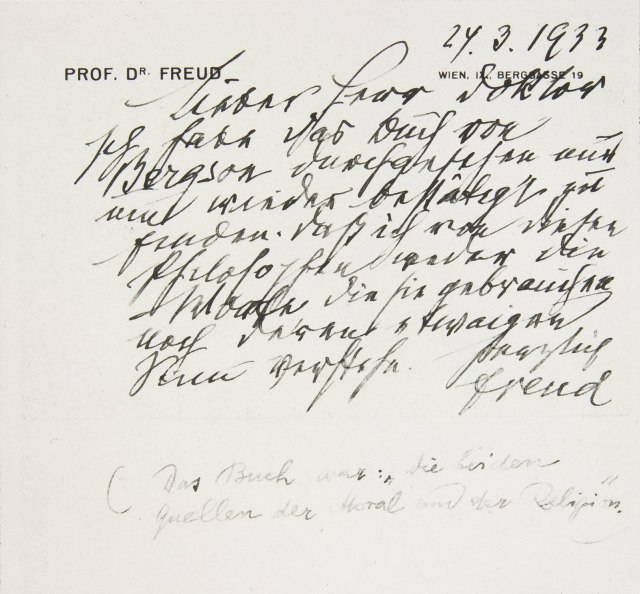 24.3.1933
PROF. DR. FREUD
WIEN, IX., BERGGASSE 19
Lieber Herr Doktor
Ich habe das Buch von
Bergson durchgesehen nur
um wieder bestätigt zu
finden, daß ich von diesen
Philosophen weder die
Worte die sie gebrauchen
noch deren etwaigen
Sinn verstehe. Herzlich
Freud
(Das Buch war: „die beiden
Quellen der Moral und der Religion")